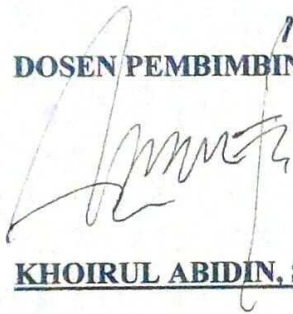 DOSEN PEMBIMBIN
KHOIRUL ABIDIN, S